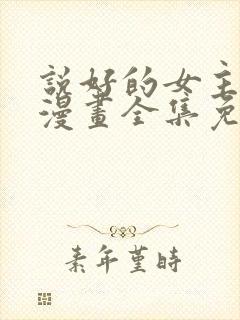 說好的女主
漫畫全集免
素年堇時